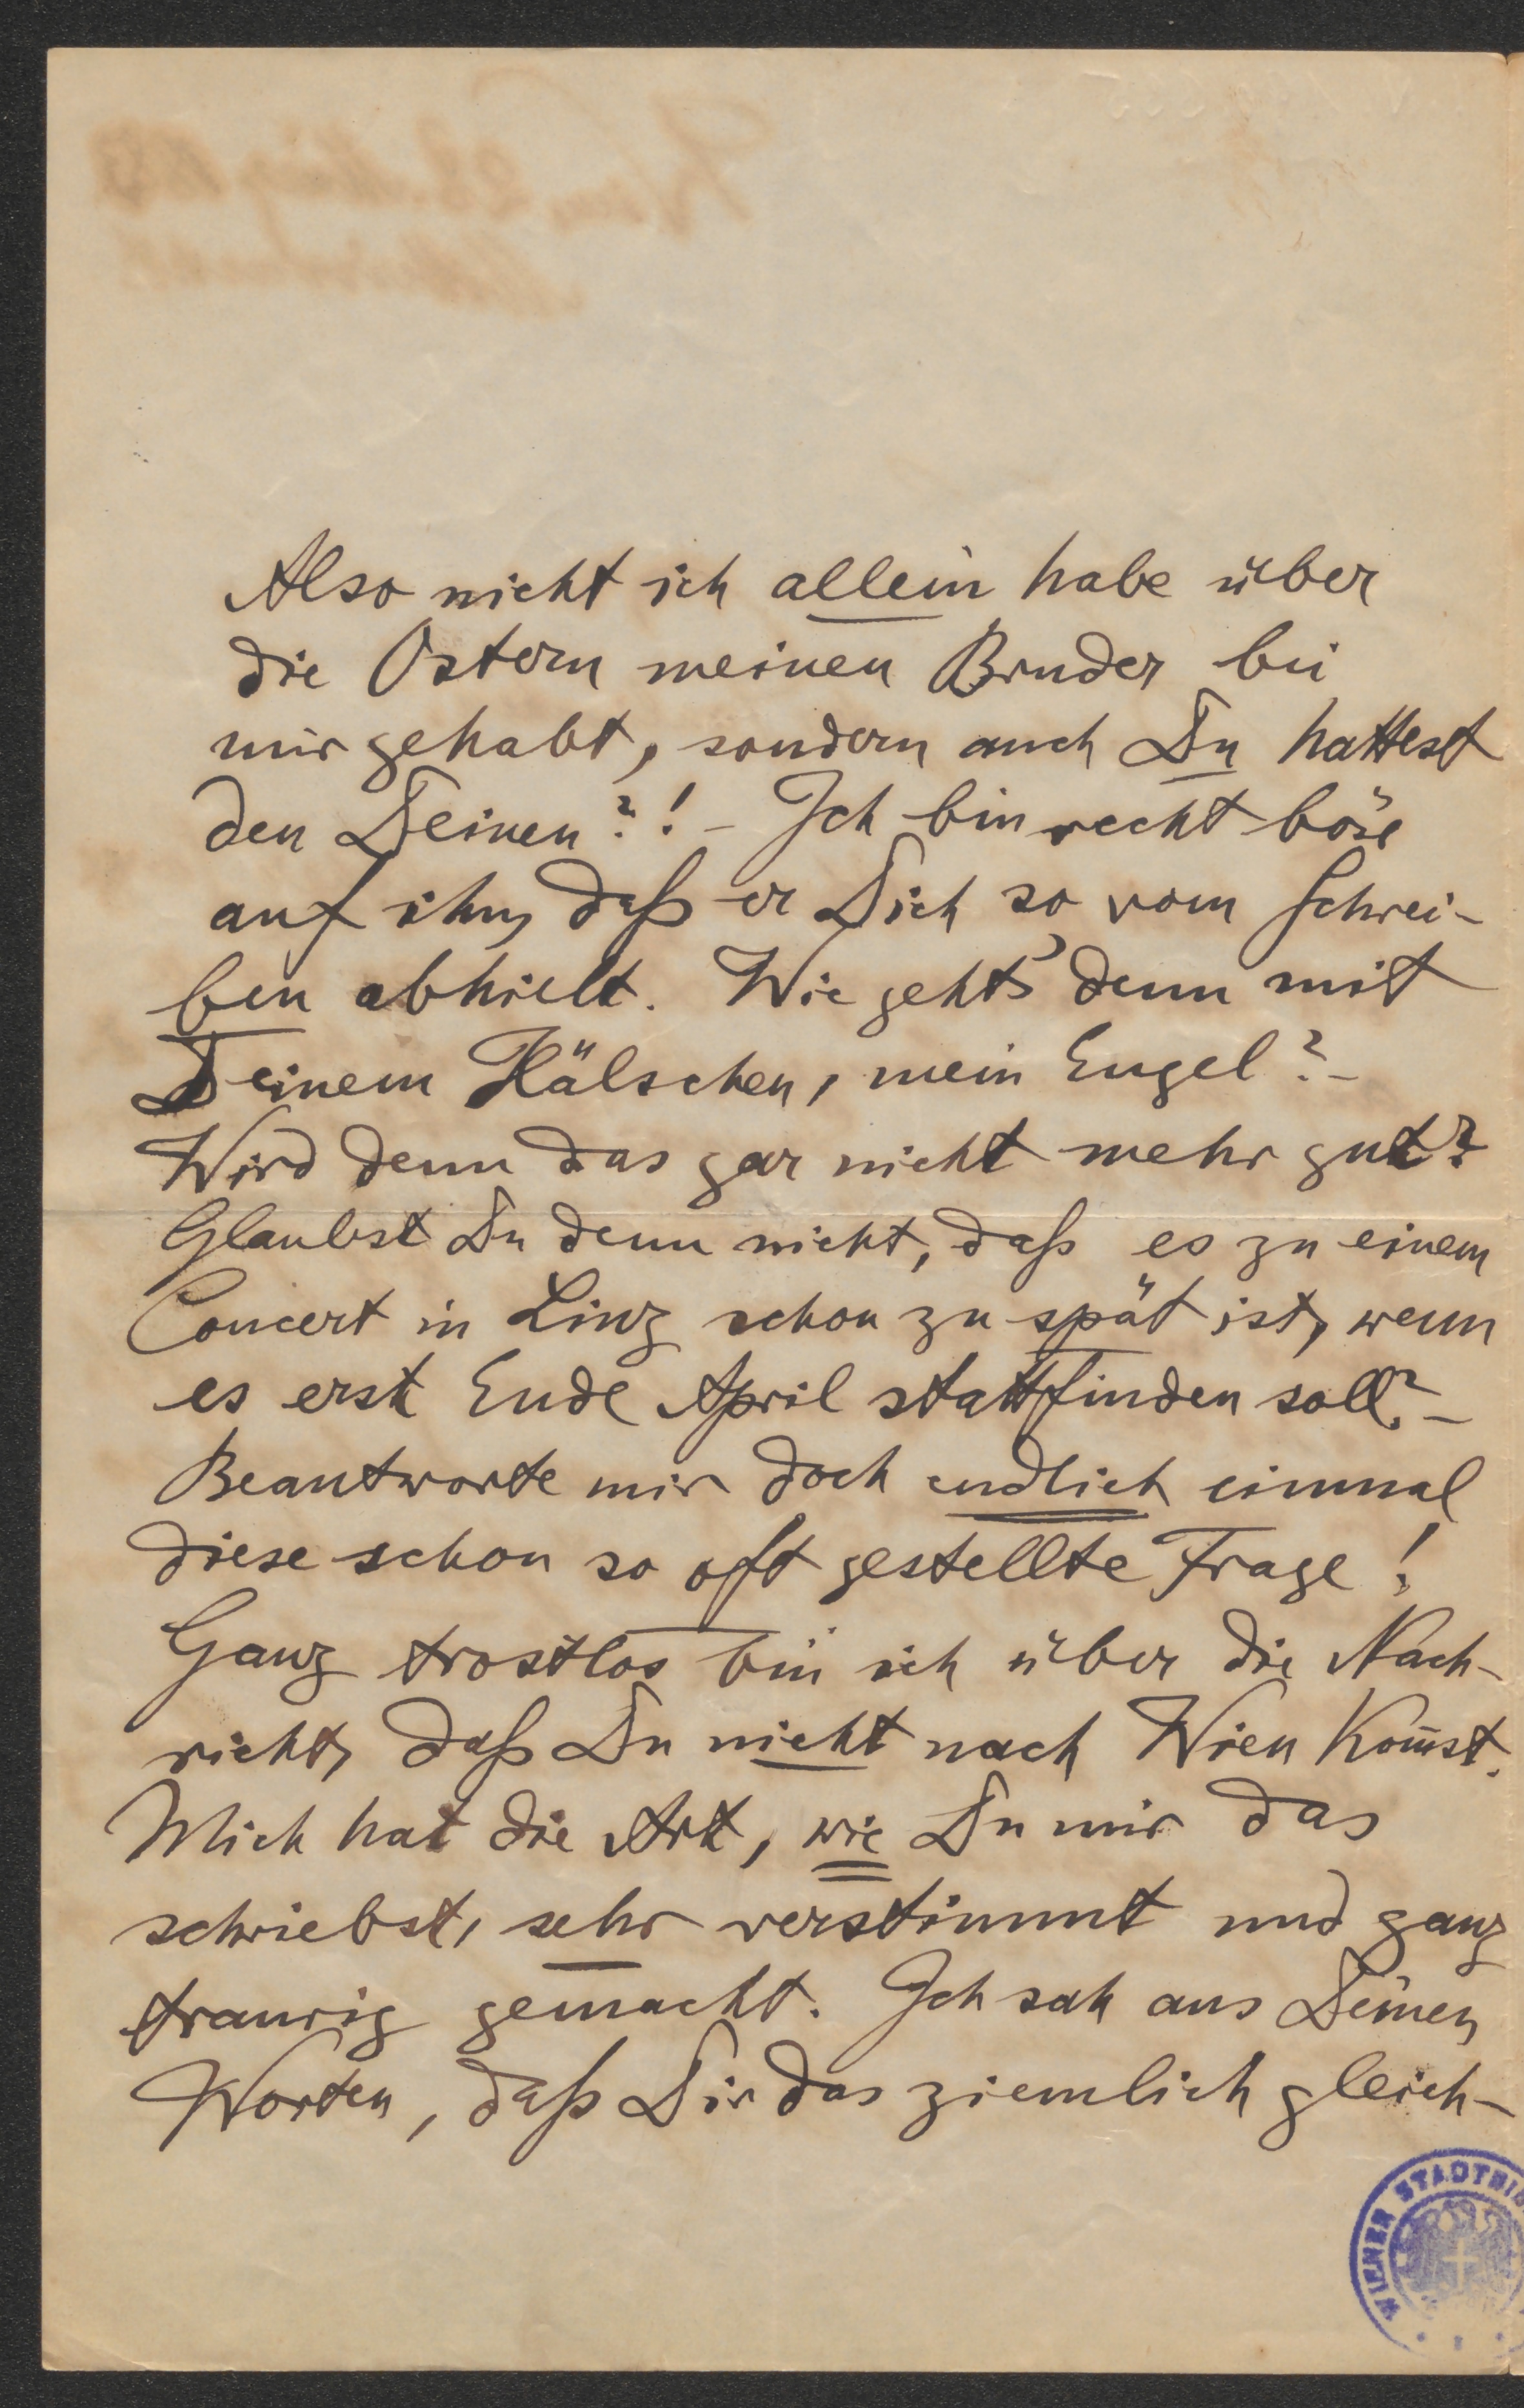 Also nicht ich allein habe über
die Ostern meinen Bruder bei
mir gehabt, sondern auch Du hattest
den Deinen?! – Ich bin recht böse
auf ihn, daß er Dich so vom Schrei-
ben abhielt. Wie geht's denn mit
Deinem Hälschen, mein Engel? –
Wird denn das gar nicht mehr gut?
Glaubst Du denn nicht, daß es zu einem
Concert in Linz schon zu spät ist, wenn
es erst Ende April stattfinden soll? –
Beantworte mir doch endlich einmal
diese schon so oft gestellte Frage!
Ganz trostlos bin ich über die Nach-
richt, daß Du nicht nach Wien kom̅st.
Mich hat die Art, wie Du mir das
schriebst, sehr verstimmt und ganz
traurig gemacht. Ich sah aus Deinen
Worten, daß Dir das ziemlich gleich-
WIENER STADTBI